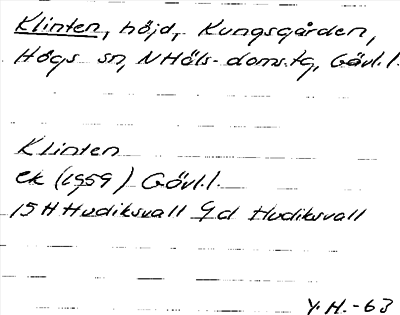 Klinten, höjd, Kungsgården,
Högs sn, NHäls. doms.tg, Gävl.l.
Klinten
ek (1959) Gävl.l.
15H Hudiksvall 9d Hudiksvall
Y.H. -63